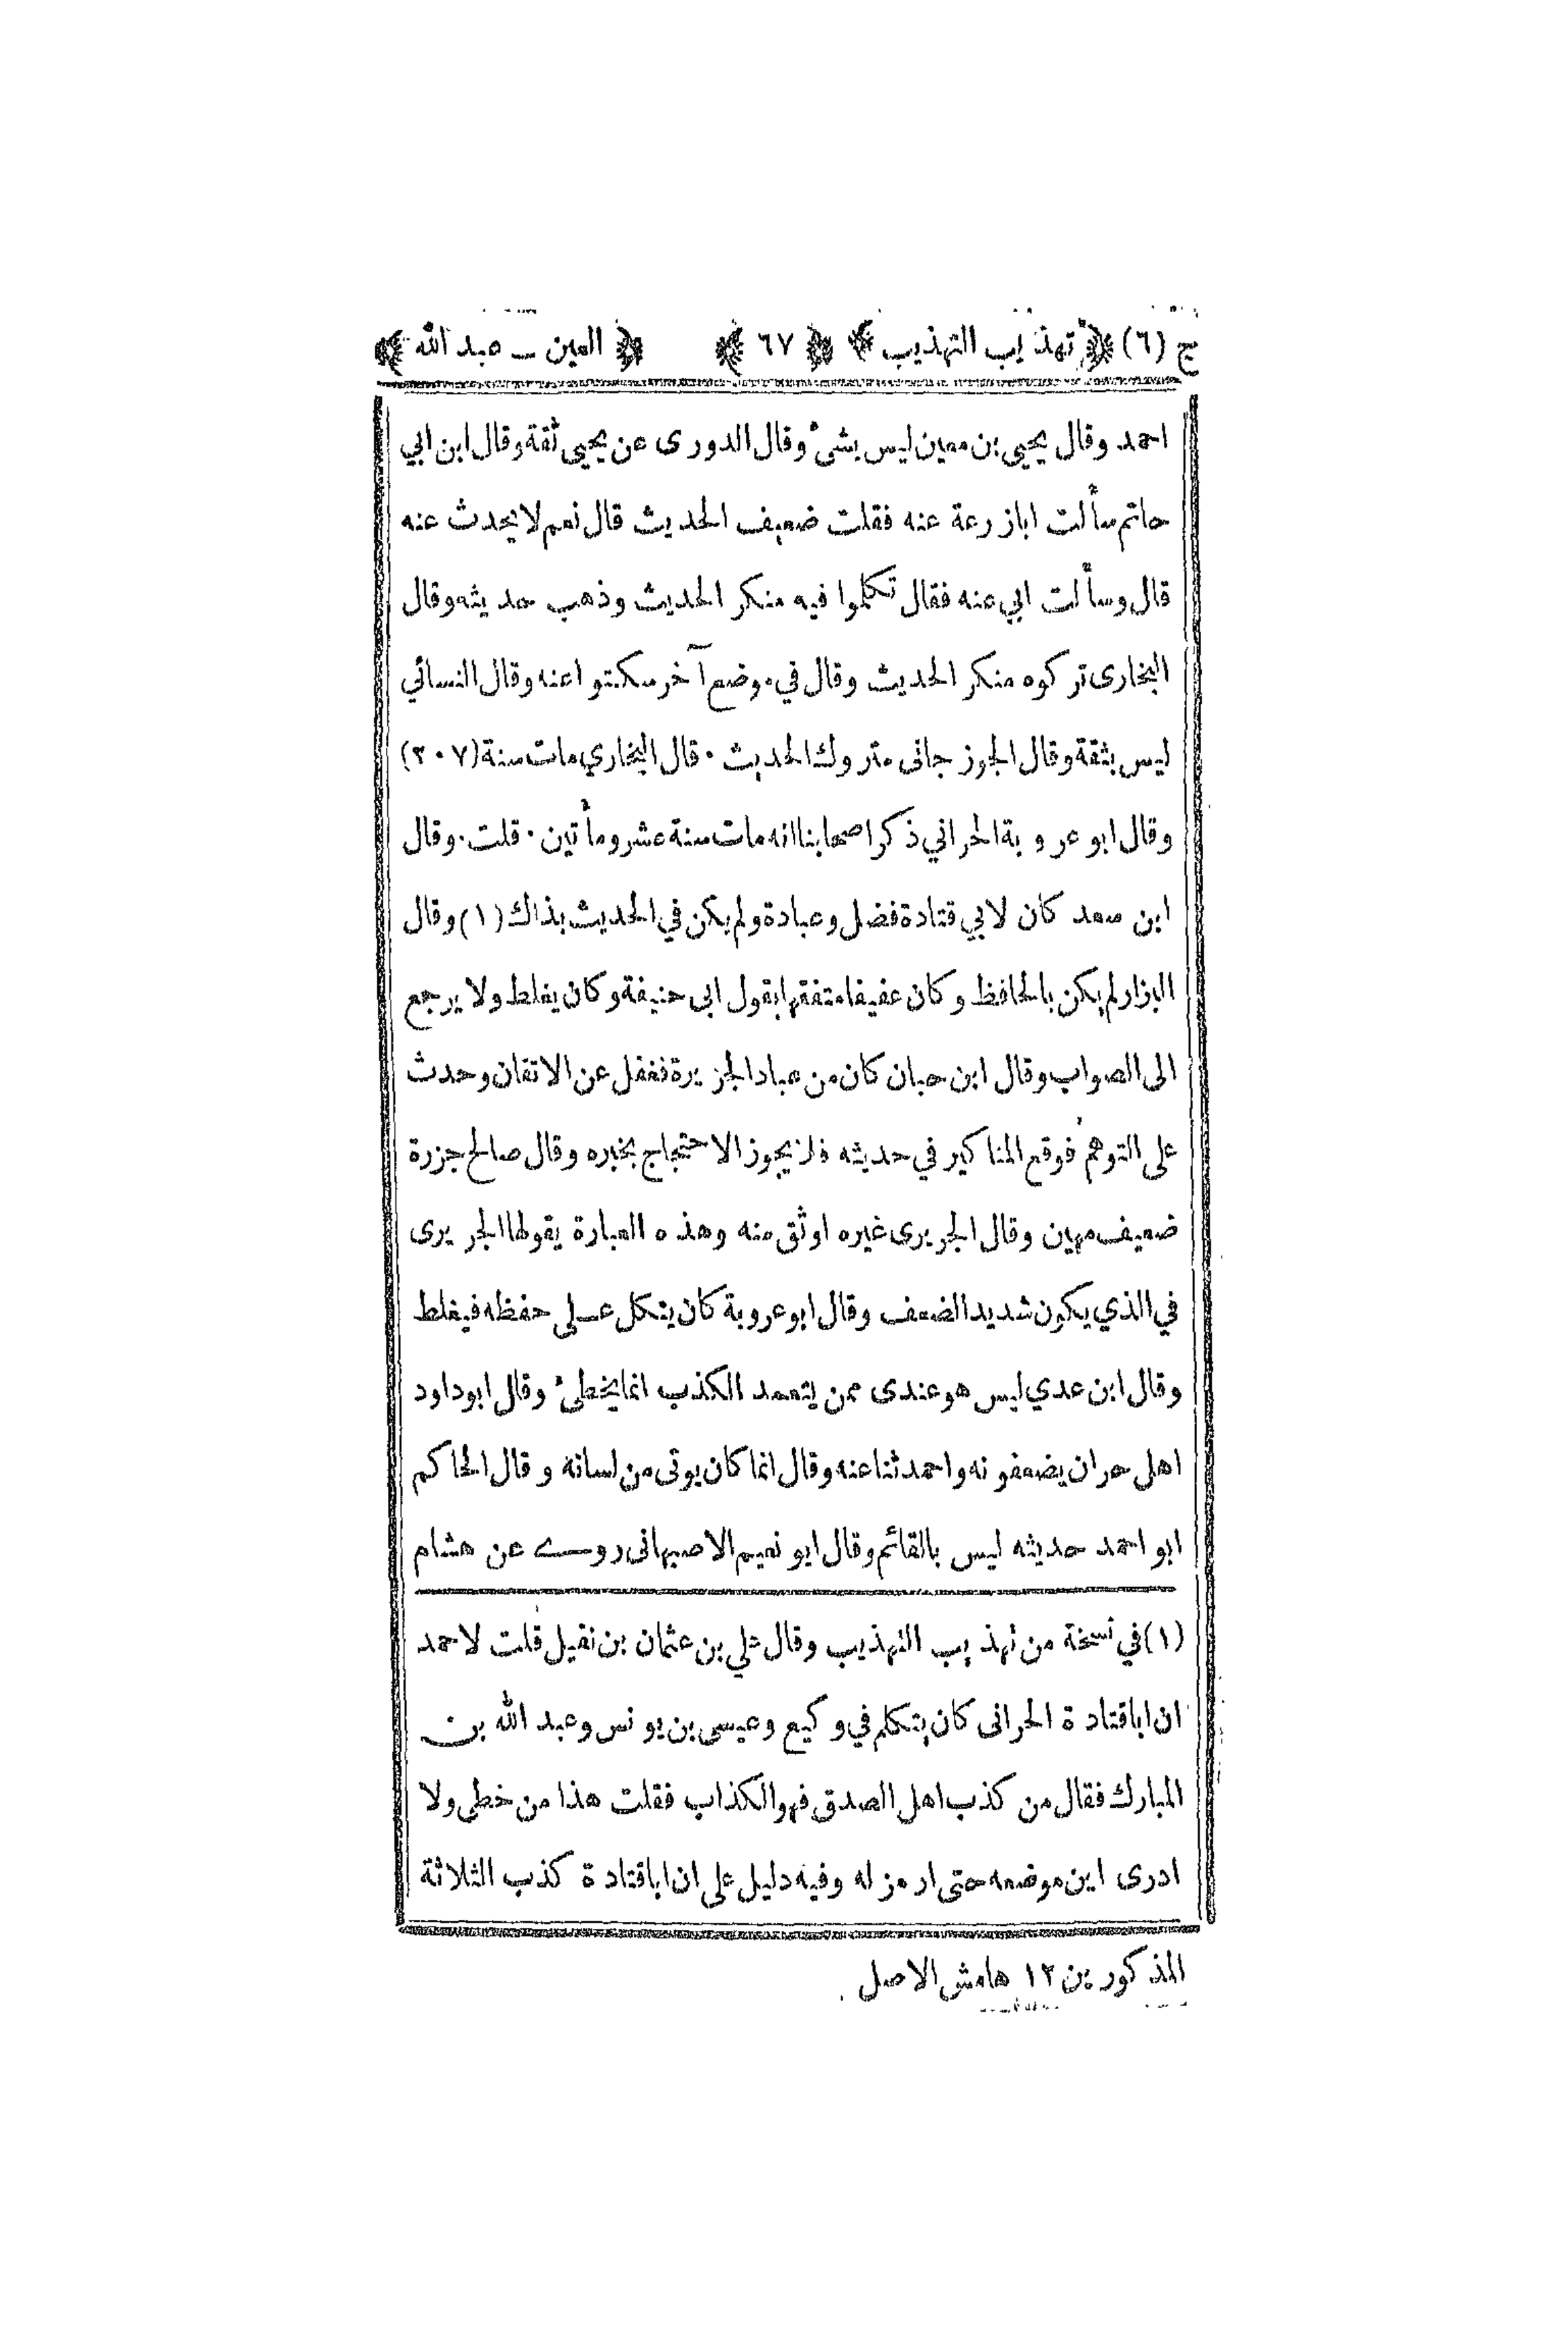 ج (٦) ﴿ تهذيب التهذيب ﴾ ﴿ ٦٧ ﴾ ﴿ العين ــ عبد الله ﴾
احمد وقال يحيى بن معين ليس بشئ وقال الدورى عن يحيى ثقة وقال ابن ابي
حاتم سألت ابازرعة عنه فقلت ضعيف الحديث قال نعم لا يحدث عنه
قال وسألت ابي عنه فقال تكلموا فيه منكر الحديث وذهب حديثه وقال
البخارى تركوه منكر الحديث وقال في موضع آخر سكتوا عنه وقال النسائي
ليس بثقة وقال الجوزجانى متروك الحديث ٠ قال البخاري مات سنة (٢٠٧)
وقال ابو عروبة الحراني ذكر اصحابنا انه مات سنة عشر ومأتين ٠ قلت ٠ وقال
ابن سعد كان لابي قتادة فضل وعبادة ولم يكن في الحديث بذاك (١) وقال
البزار لم يكن بالحافظ وكان عفيفا متفقها بقول ابى حنيفة وكان يغلط ولا يرجع
الى الصواب وقال ابن حبان كان من عباد الجزيرة فغفل عن الاتقان وحدث
على التوهم فوقع المناكير في حديثه فلا يجوز الاحتجاج بخبره وقال صالح جزرة
ضعيف مهين وقال الجريرى غيره اوثق منه وهذه العبارة يقولها الجريرى
في الذي يكون شديد الضعف وقال ابو عروبة كان يتكل على حفظه فيغلط
وقال ابن عدي ليس هو عندى ممن يتعمد الكذب انما يخطئ وقال ابوداود
اهل حران يضعفونه واحمد ثنا عنه وقال انما كان يوتى من لسانه وقال الحاكم
ابو احمد حديثه ليس بالقائم وقال ابو نعيم الاصبهانى روى عن هشام
(١) في نسخة من تهذيب التهذيب وقال علي بن عثمان بن نفيل قلت لاحمد
ان اباقتادة الحرانى كان يتكلم في وكيع وعيسى بن يونس وعبد الله بن
المبارك فقال من كذب اهل الصدق فهو الكذاب فقلت هذا من خطى ولا
ادرى اين موضعه حتى ارمز له وفيه دليل على ان اباقتادة كذب الثلاثة
المذكورين ١٢ هامش الاصل